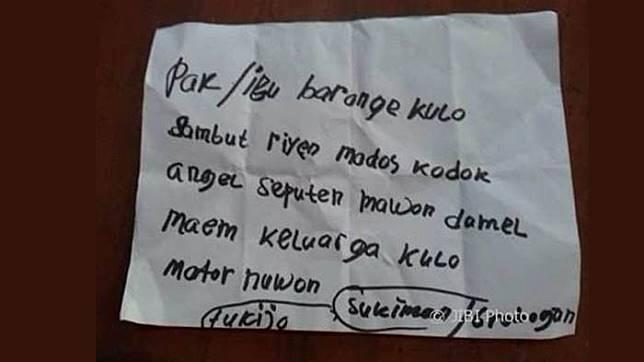 Pak/ibu barange kulo
sambut riyen mados kodok
angel seputen mawon damel
maem keluarga kulo
mator nuwon
tukijo sukiman/
© JIBI Photo